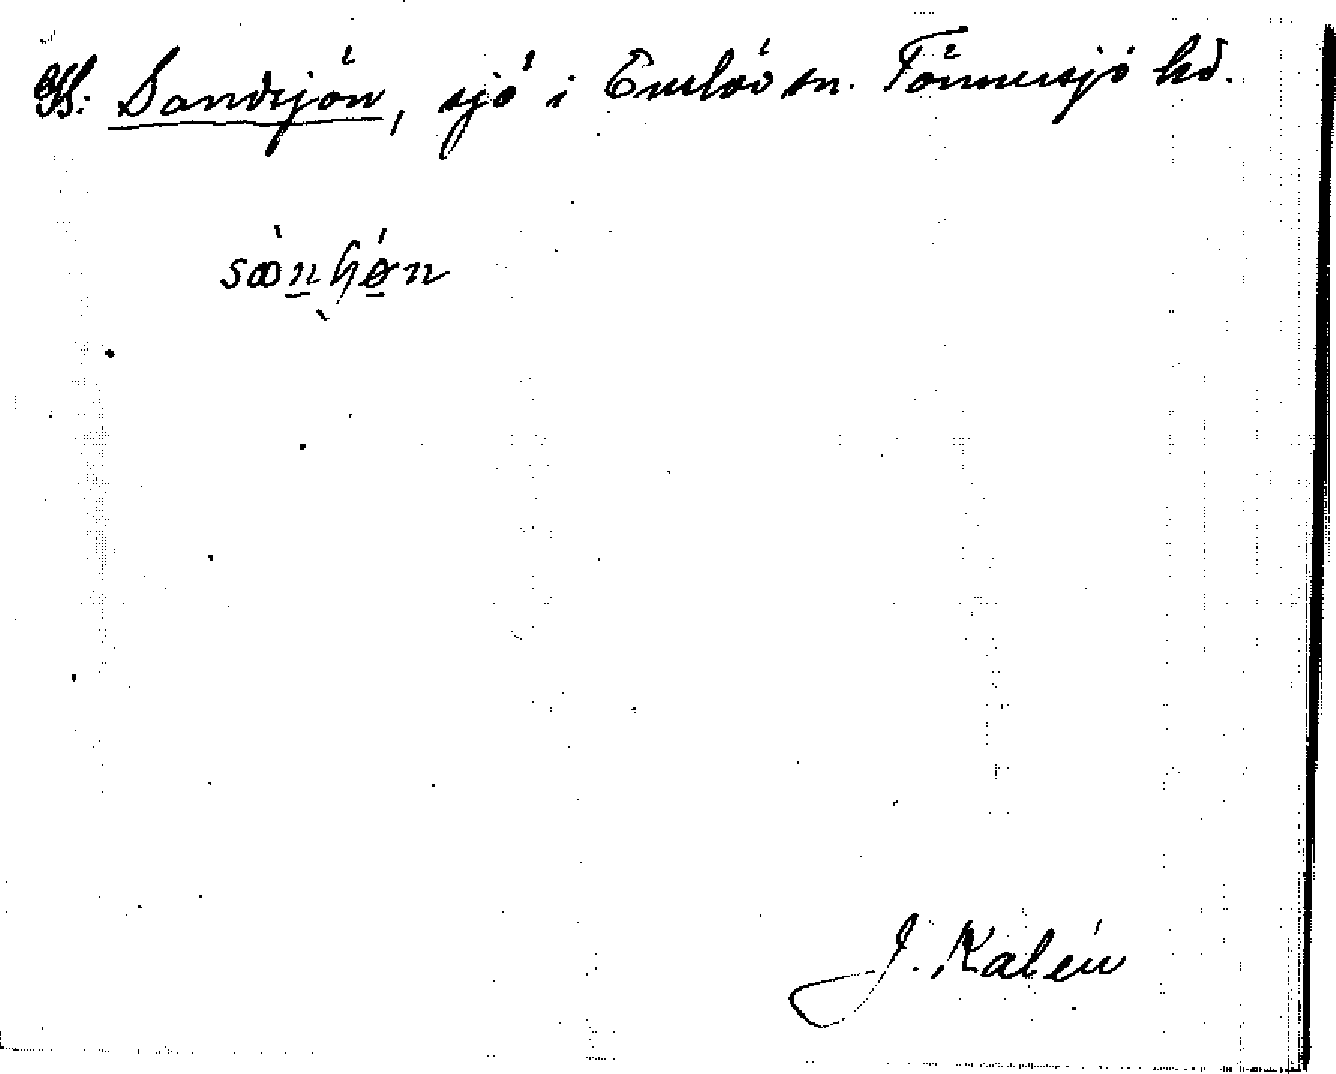 Hl. Sandsjön, sjö i Enslöv sn. Tönnersjö hd.
J. Kalén